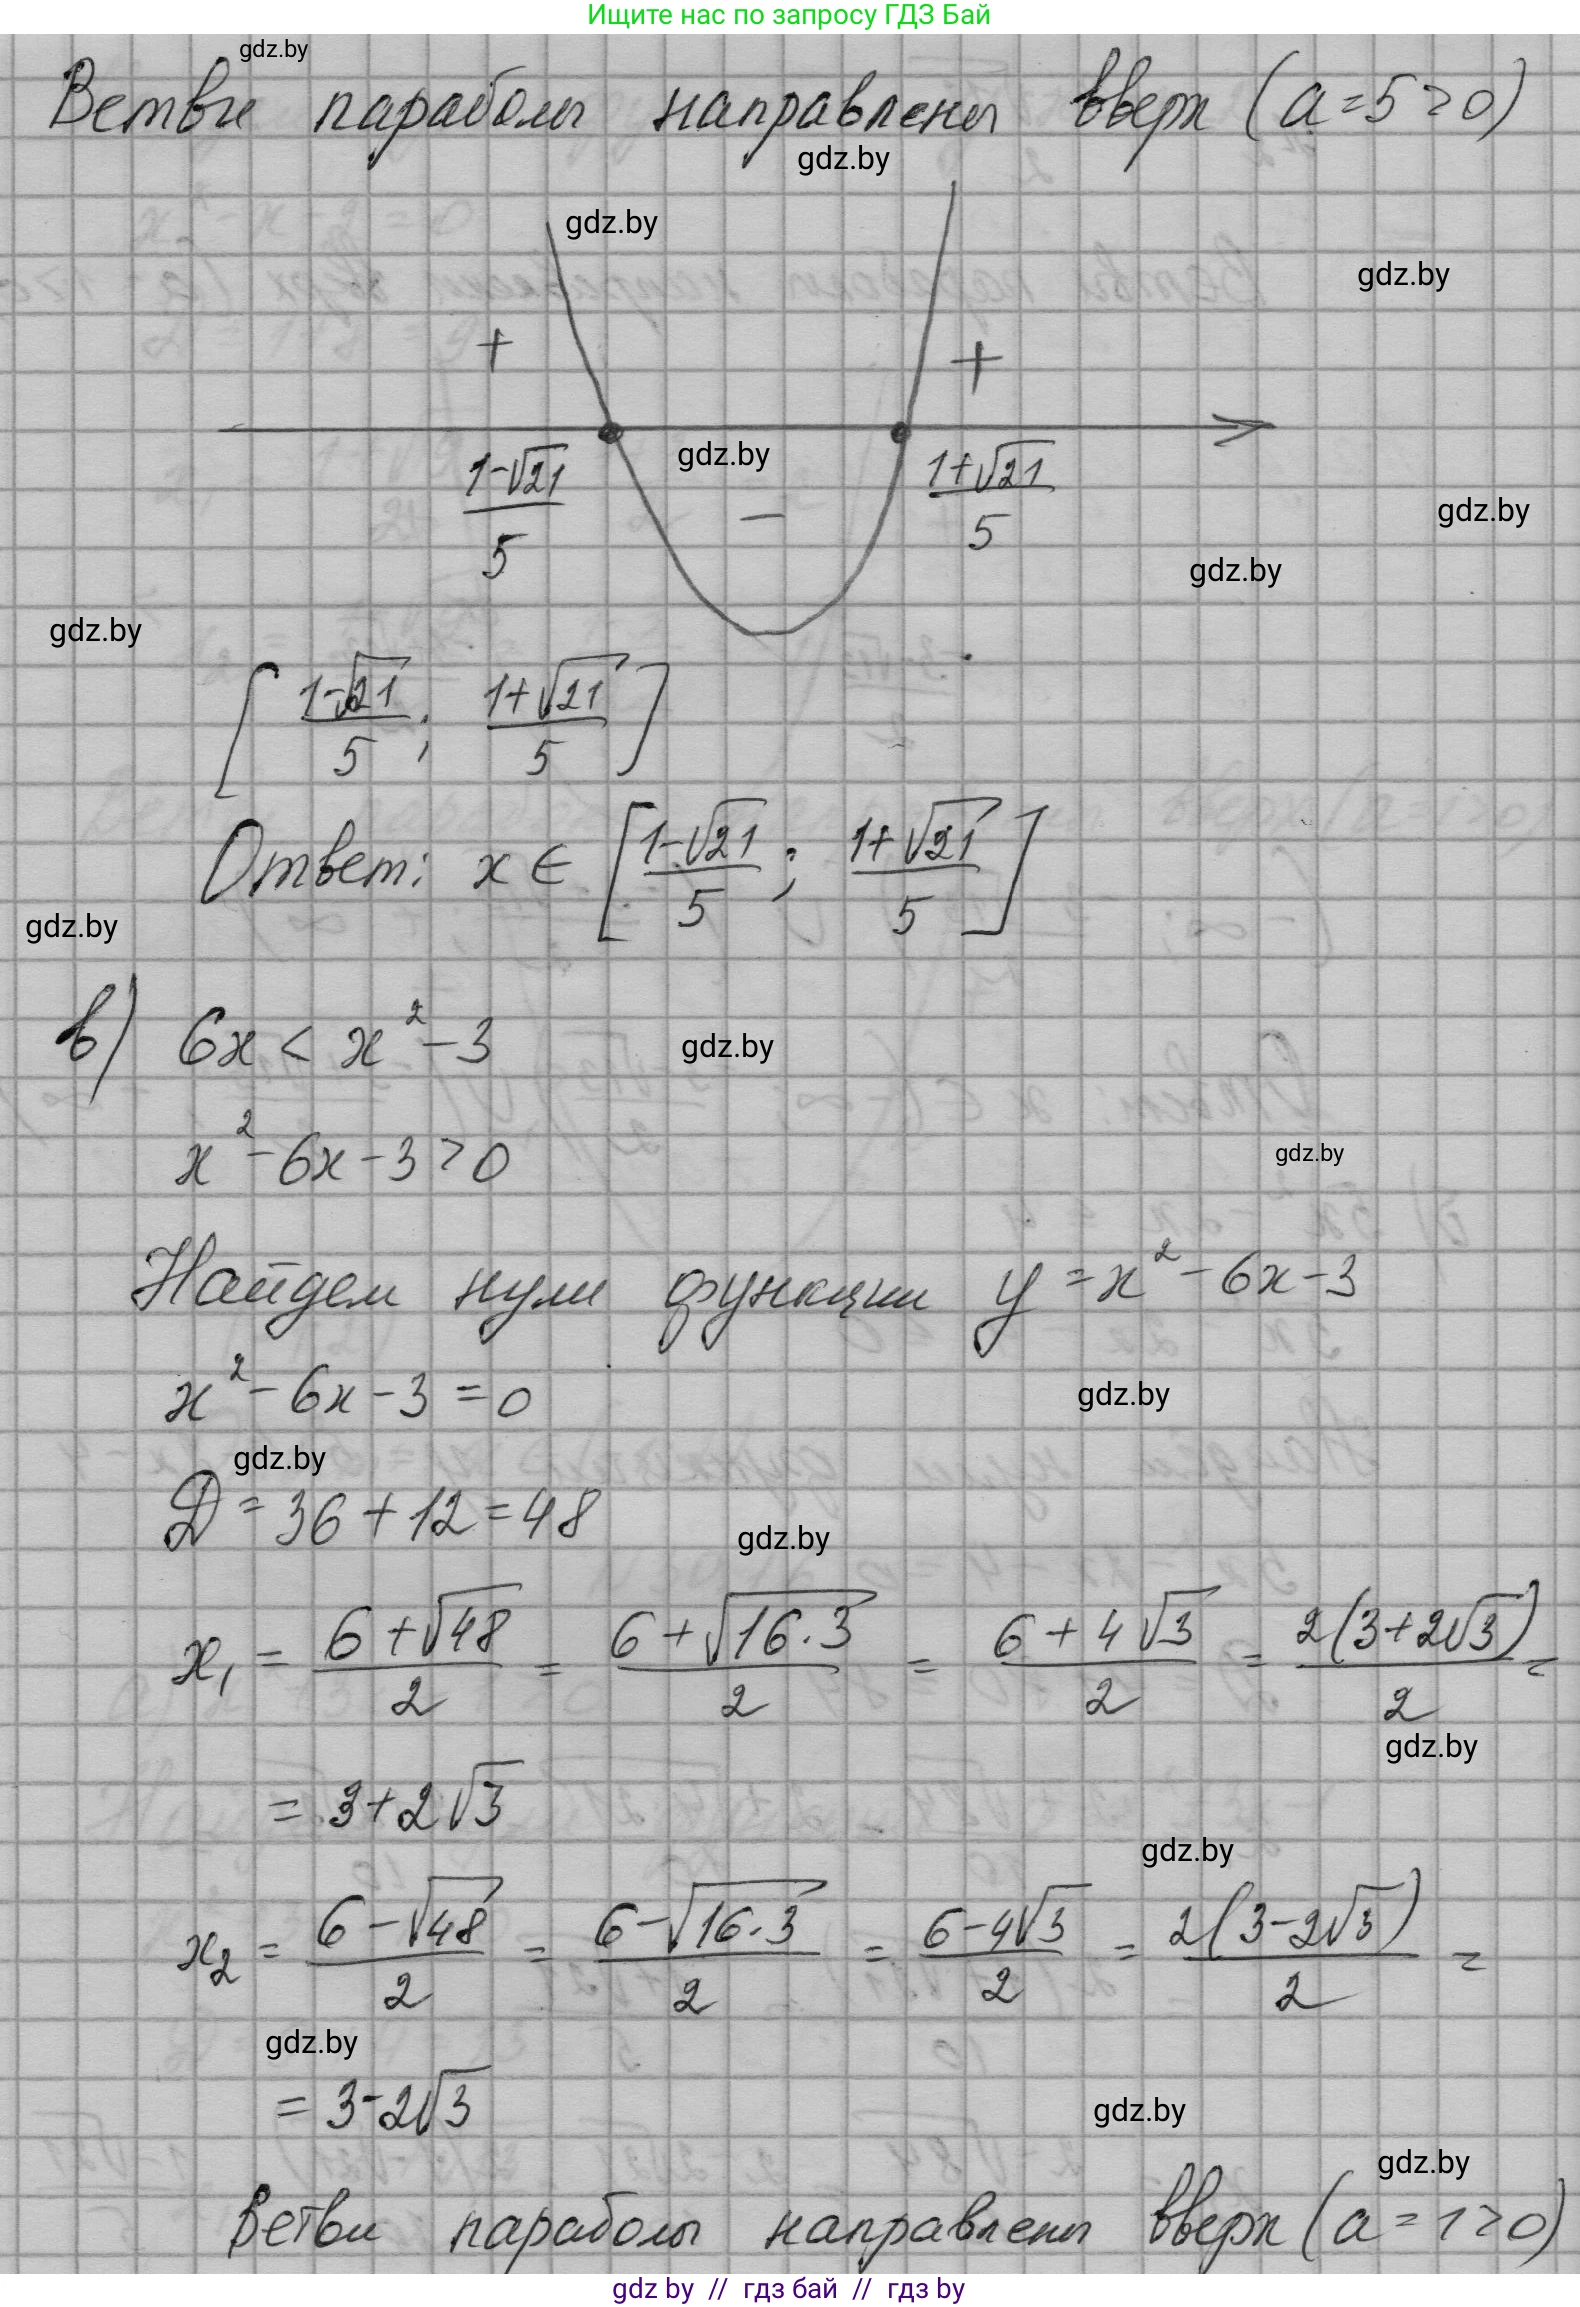 Ищите нас по запросу ГДЗ Бай
gdz.by
Ветви параболы направлены вверх (a=5>0)
gdz.by
gdz.by
gdz.by
+ +
gdz.by
(1-√21)/5 - (1+√21)/5
gdz.by
gdz.by
gdz.by
[(1-√21)/5; (1+√21)/5]
Ответ: x ∈ [(1-√21)/5; (1+√21)/5]
gdz.by
в) 6x < x² - 3
gdz.by
x² - 6x - 3 > 0
gdz.by
Найдем нули функции y = x² - 6x - 3
x² - 6x - 3 = 0
gdz.by
gdz.by
Д = 36 + 12 = 48
gdz.by
x₁ = (6+√48)/2 = (6+√16·3)/2 = (6+4√3)/2 = 2(3+2√3)/2 =
gdz.by
= 3+2√3
gdz.by
x₂ = (6-√48)/2 = (6-√16·3)/2 = (6-4√3)/2 = 2(3-2√3)/2 =
gdz.by
= 3-2√3
gdz.by
gdz.by
Ветви параболы направлены вверх (a=1>0)
gdz by // гдз бай // гдз by